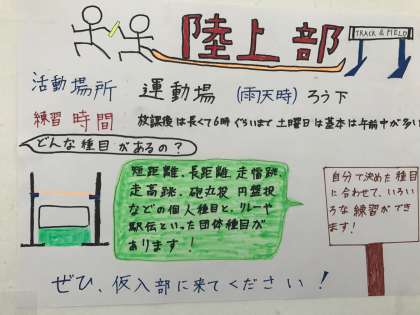 陸上部
TRACK & FIELD
活動場所 運動場 (雨天時) ろう下
練習時間 放課後は長くて6時ぐらいまで 土曜日は基本は午前中が多い
どんな種目があるの？
短距離、長距離、走幅跳、
走高跳、砲丸投、円盤投
などの個人種目と、リレーや
駅伝といった団体種目が
あります！
自分で決めた種目
に合わせて、いろい
ろな練習ができ
ます！
ぜひ、仮入部に来てください！